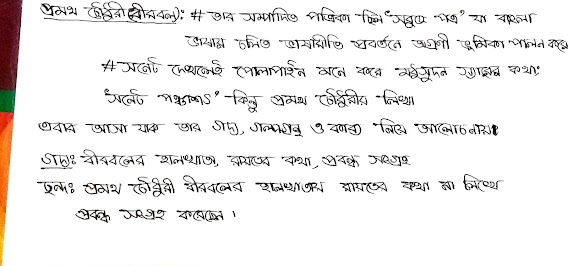 প্রমথ চৌধুরী(বীরবল): # তার সম্পাদিত পত্রিকা ছিল "সবুজ পত্র" যা বাংলা
ভাষায় চলিত ভাষারীতি প্রবর্তনে অগ্রণী ভূমিকা পালন করে
# সনেট দেখলেই পোলাপাইন মনে করে মধুসূদন স্যারের কথা!
"সনেট পঞ্চাশৎ" কিন্তু প্রমথ চৌধুরীর লিখা
এবার আসা যাক তার গদ্য, গল্পগ্রন্থ ও কাব্য নিয়ে আলোচনায়।
গদ্য: বীরবলের হালখাতা, রায়তের কথা, প্রবন্ধ সংগ্রহ
ছন্দ: প্রমথ চৌধুরী বীরবলের হালখাতায় রায়তের কথা না লিখে
প্রবন্ধ সংগ্রহ করেছেন।